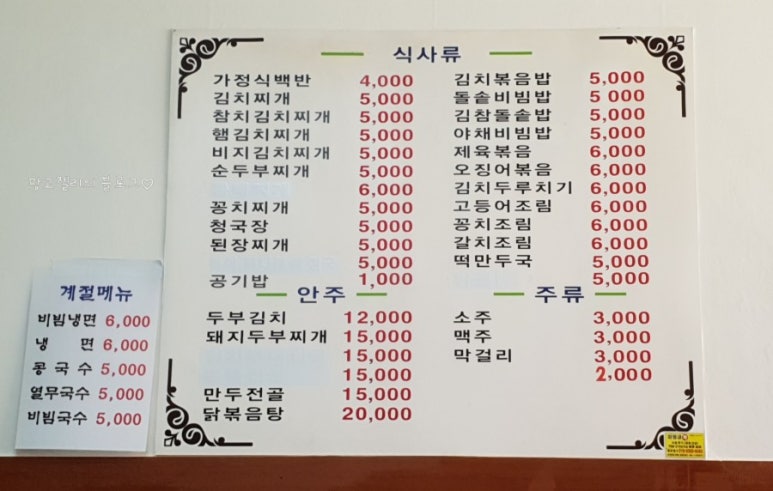 식사류
가정식백반 4,000
김치찌개 5,000
참치김치찌개 5,000
햄김치찌개 5,000
비지김치찌개 5,000
순두부찌개 5,000
6,000
꽁치찌개 5,000
청국장 5,000
된장찌개 5,000
5,000
공기밥 1,000
김치볶음밥 5,000
돌솥비빔밥 5 000
김참돌솥밥 5,000
야채비빔밥 5,000
제육볶음 6,000
오징어볶음 6,000
김치두루치기 6,000
고등어조림 6,000
꽁치조림 6,000
갈치조림 6,000
떡만두국 5,000
5,000
안주
두부김치 12,000
돼지두부찌개 15,000
15,000
15,000
만두전골 15,000
닭볶음탕 20,000
주류
소주 3,000
맥주 3,000
막걸리 3,000
2,000
계절메뉴
비빔냉면 6,000
냉 면 6,000
콩국수 5,000
열무국수 5,000
비빔국수 5,000